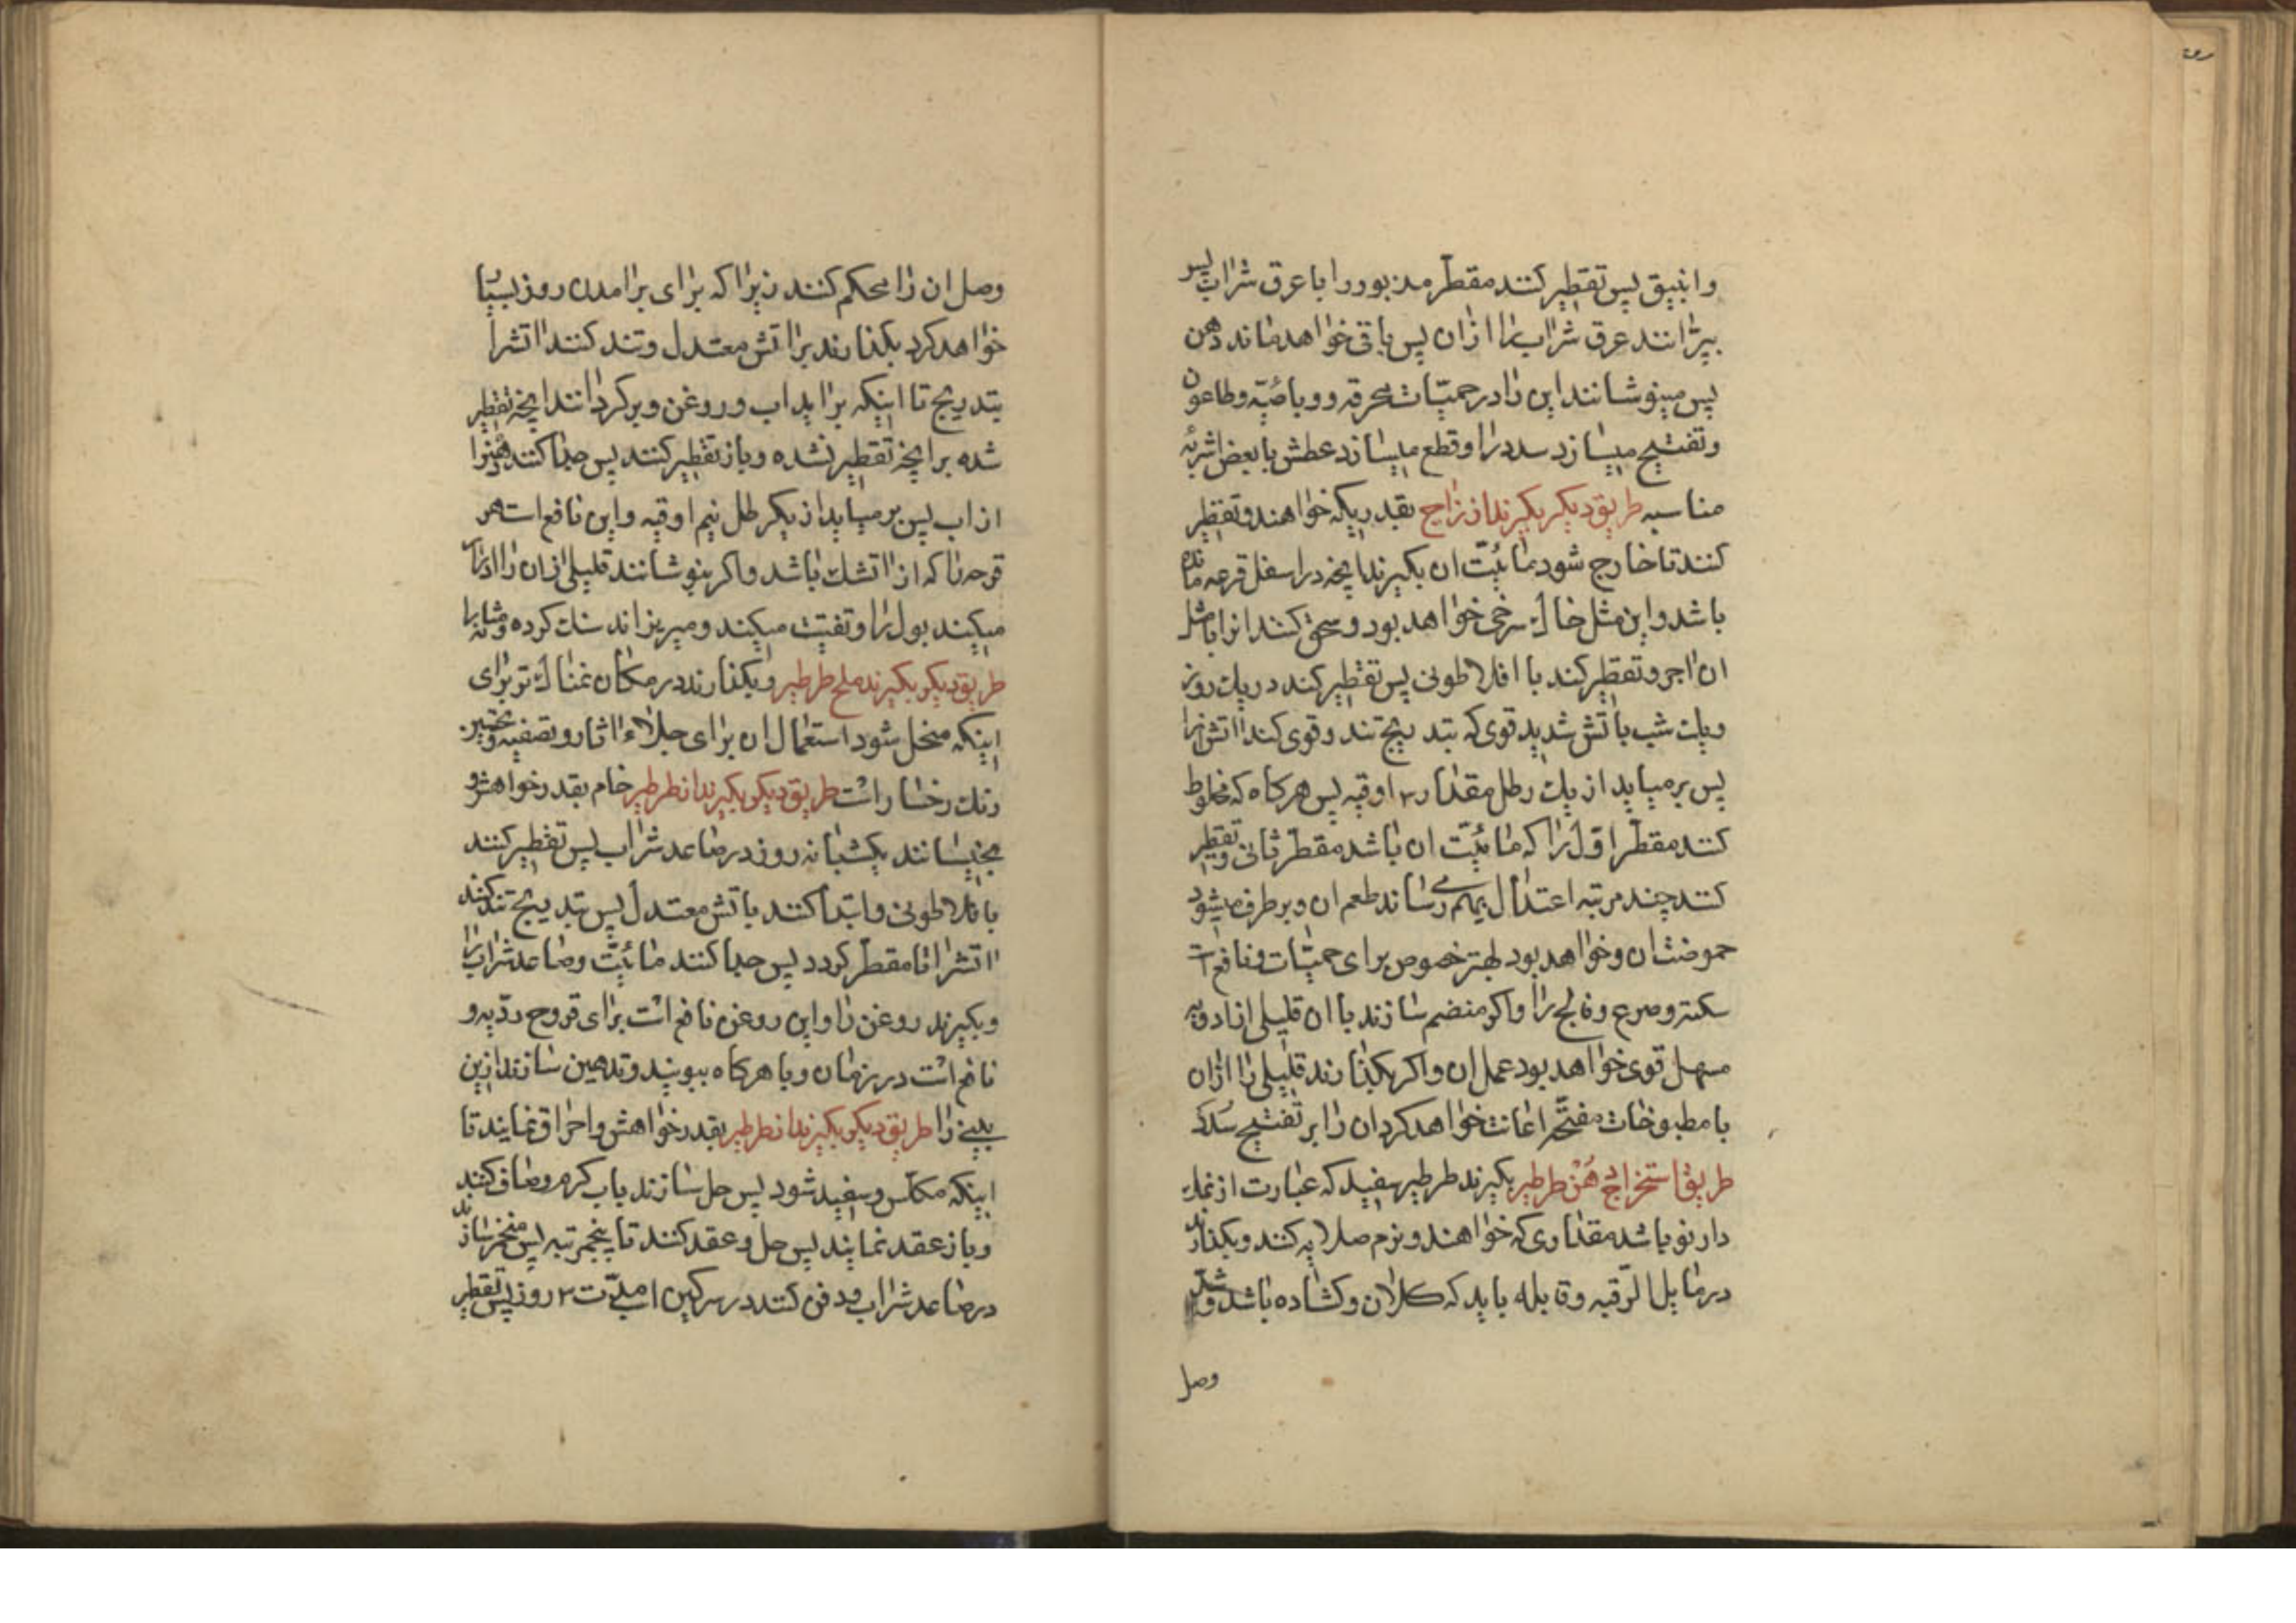 وانبیق پس تقطیر کنند مقطّر مذبور را با عرق شراب پس
بپزانند عرق شراب را ازان پس باقی خواهد ماند دهن
پس مینوشانند این را در حمیّات محرقه و وبائیّه و طاعون
و تفتیح میسازد سدد را و قطع میسازد عطش با بعض اشربهٔ
مناسبه طریق دیکر بکیرند از زاج بقدریکه خواهند و تقطیر
کنند تا خارج شود مائیّت ان بکیرند انچه در اسفل قرعه مانده
باشد و این مثل خاک سرخی خواهد بود و سحق کنند انرا با مثل
ان اجر و تقطیر کند با افلاطونی پس تقطیر کند در یک روز
و یک شب باتش شدید قوی که بتدریج تند و قوی کند اتش را
پس برمیاید از یک رطل مقدار ۲ اوقیه پس هرکاه که مخلوط
کنند مقطّر اوّل را که مائیّت ان باشد مقطّر ثانی و تقطیر
کنند چند مرتبه اعتدال بهم رساند طعم ان و برطرف میشود
حموضت ان و خواهد بود بهتر خصوص برای حمیّات و نافع است
سکته و صرع و فالج را و اکر منضم سازند با ان قلیلی از ادویه
مسهل قوی خواهد بود عمل ان و اکر بکذارند قلیلی را ازان
با مطبوخات مفتّحه اعانت خواهد کرد ان را بر تفتیح سدد
طریق استخراج دهن طرطیر بکیرند طرطیر سفید که عبارت از نمک
دارنو باشد مقداری که خواهند و نرم صلایه کنند و بکذارند
در مایل الرّقبه و قابله باید که کلان و کشاده باشد و
وصل
وصل ان را محکم کنند زیرا که برای برامدن روز بسیا
خواهد کرد بکذارند بر اتش معتدل و تند کنند اتشرا
بتدریج تا اینکه براید اب و روغن و برکردانند انچه تقطیر
شده بر انچه تقطیر نشده و باز تقطیر کنند پس جدا کنند دهنرا
از اب پس برمیاید از یکرطل نیم اوقیه و این نافع است هر
قرحه را که از اتشک باشد و اکر بنوشانند قلیلی ازان را ادرار
میکنند بول را و تفتیت میکیند و میریزاند سنک کرده و مثانه را
طریق دیکر بکیرند ملح طرطیر و بکذارند در مکان نمناک تر برای
اینکه منحل شود استعمال ان برای جلاء اثار و تصفیه و تحسین
رنک رخسار است طریق دیکر بکیرند از طرطیر خام بقدر خواهش و
بخیسانند یکشبانه روز در صاعد شراب پس تقطیر کنند
بافلاطونی و ابتدا کنند باتش معتدل پس بتدریج تند کنند
اتشرا تا مقطّر کردد پس جدا کنند مائیّت و صاعد شراب را
و بکیرند روغن را و این روغن نافع است برای قروح ردّیه و
نافع است در زمان وبا هرکاه ببویند و تدهین سازند ازین
بینی را طریق دیکر بکیرند از طرطیر بقدر خواهش و احراق نمایند تا
اینکه مکلّس و سفید شود پس حل سازند باب کرم و صاف کنند
و باز عقد نمایند پس حل و عقد کنند تا پنجمرتبه پس منخر سازند
در صاعد شراب و دفن کنند در سرکین اسب مدّت ۲ روز پس تقطیر